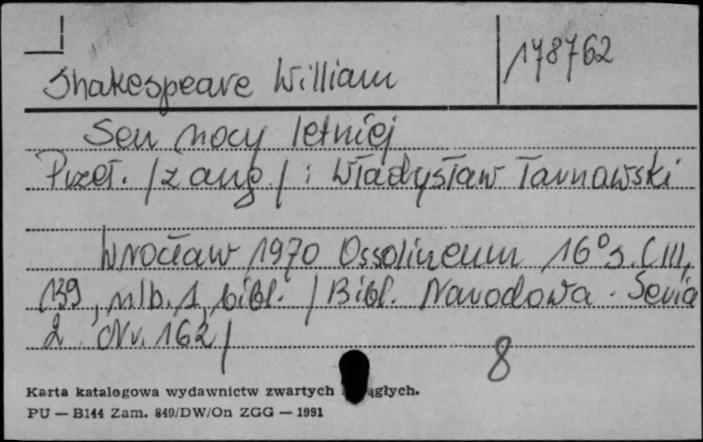 178762
Shakespeare William
Sen nocy letniej
Przeł. /z ang./ : Władysław Tarnawski
Wrocław 1970 Ossolineum 16° s. CIII,
139, nlb. 1, bibl. /Bibl. Narodowa. Seria
2 Nr. 162/
8
Karta katalogowa wydawnictw zwartych ągłych.
PU — B144 Zam. 849/DW/On ZGG — 1991